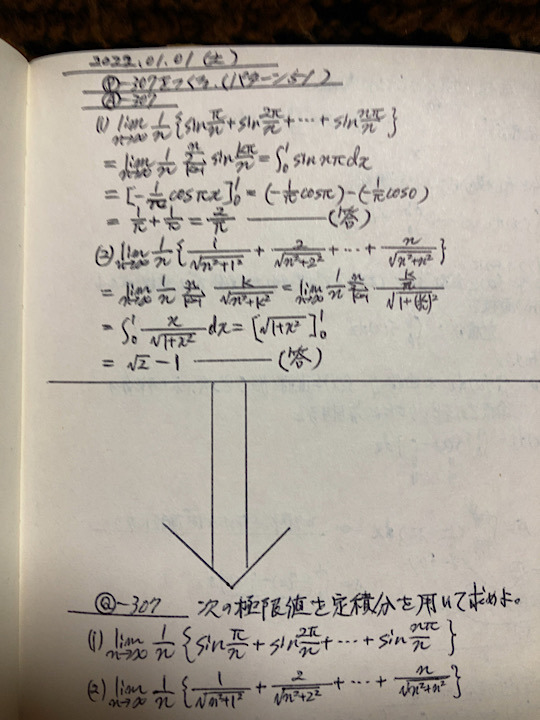 2022.01.01 (土)
Ⓟ-307をつくる。(パターン51)
Ⓐ-307
(1) lim_{n→∞} 1/n {sin π/n + sin 2π/n + … + sin nπ/n}
= lim_{n→∞} 1/n Σ_{k=1}^{n} sin kπ/n = ∫₀¹ sin xπ dx
= [-1/π cos πx]₀¹ = (-1/π cos π) - (-1/π cos 0)
= 1/π + 1/π = 2/π ――― (答)
(2) lim_{n→∞} 1/n {1/√(n²+1²) + 2/√(n²+2²) + … + n/√(n²+n²)}
= lim_{n→∞} 1/n Σ_{k=1}^{n} k/√(n²+k²) = lim_{n→∞} 1/n Σ_{k=1}^{n} (k/n)/√(1+(k/n)²)
= ∫₀¹ x/√(1+x²) dx = [√(1+x²)]₀¹
= √2 - 1 ――― (答)
Ⓠ-307 次の極限値を定積分を用いて求めよ。
(1) lim_{n→∞} 1/n {sin π/n + sin 2π/n + … + sin nπ/n}
(2) lim_{n→∞} 1/n {1/√(n²+1²) + 2/√(n²+2²) + … + n/√(n²+n²)}